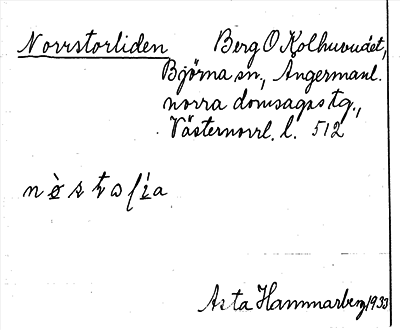 Norrstorliden Berg O Kolhuvudet,
Björna sn., Ångermanl.
norra domsagas tg.,
Västernorrl. l. 512
Asta Hammarberg 1933